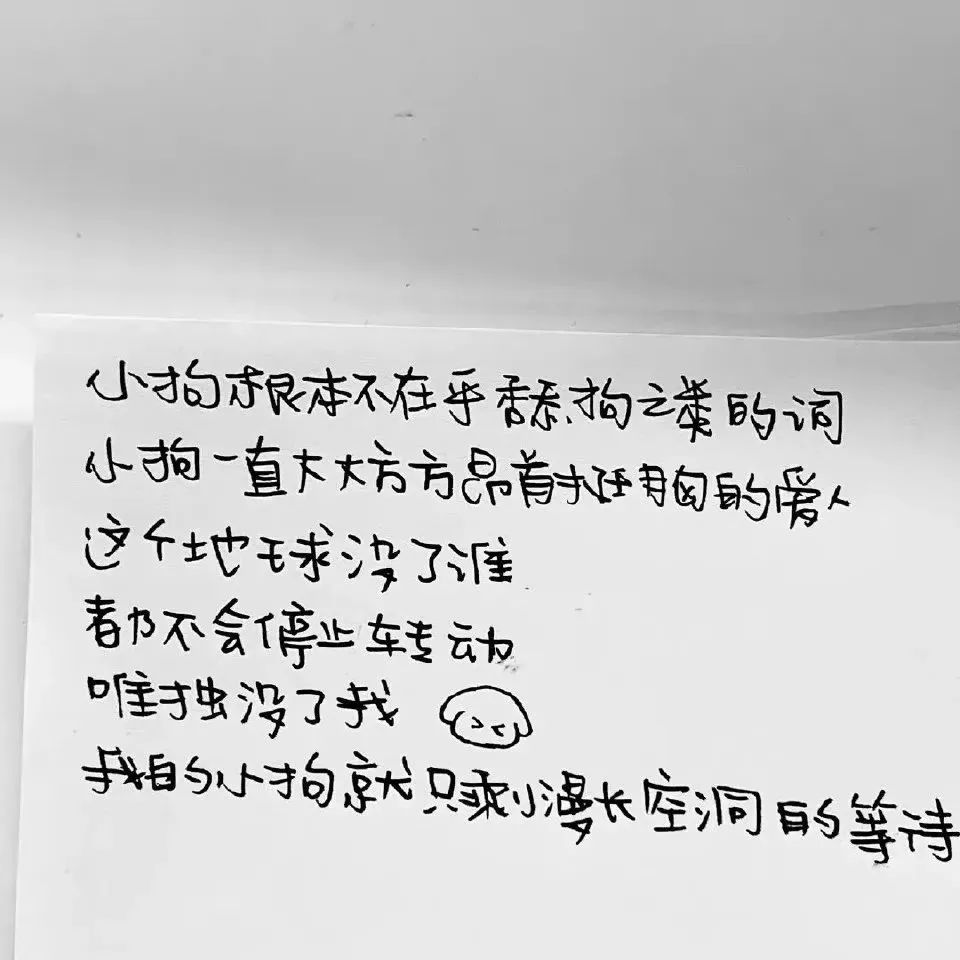 小狗根本不在乎舔狗之类的词
小狗一直大大方方昂首挺胸的爱人
这个地球没了谁
都不会停止转动
唯独没了我
我的小狗就只剩漫长空洞的等待